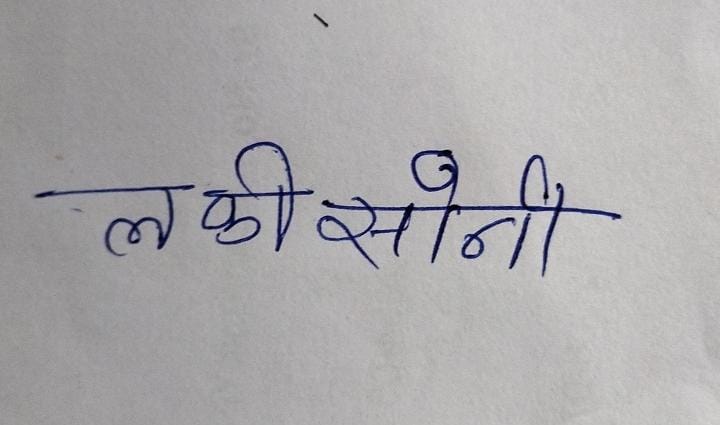 लकी सोनी